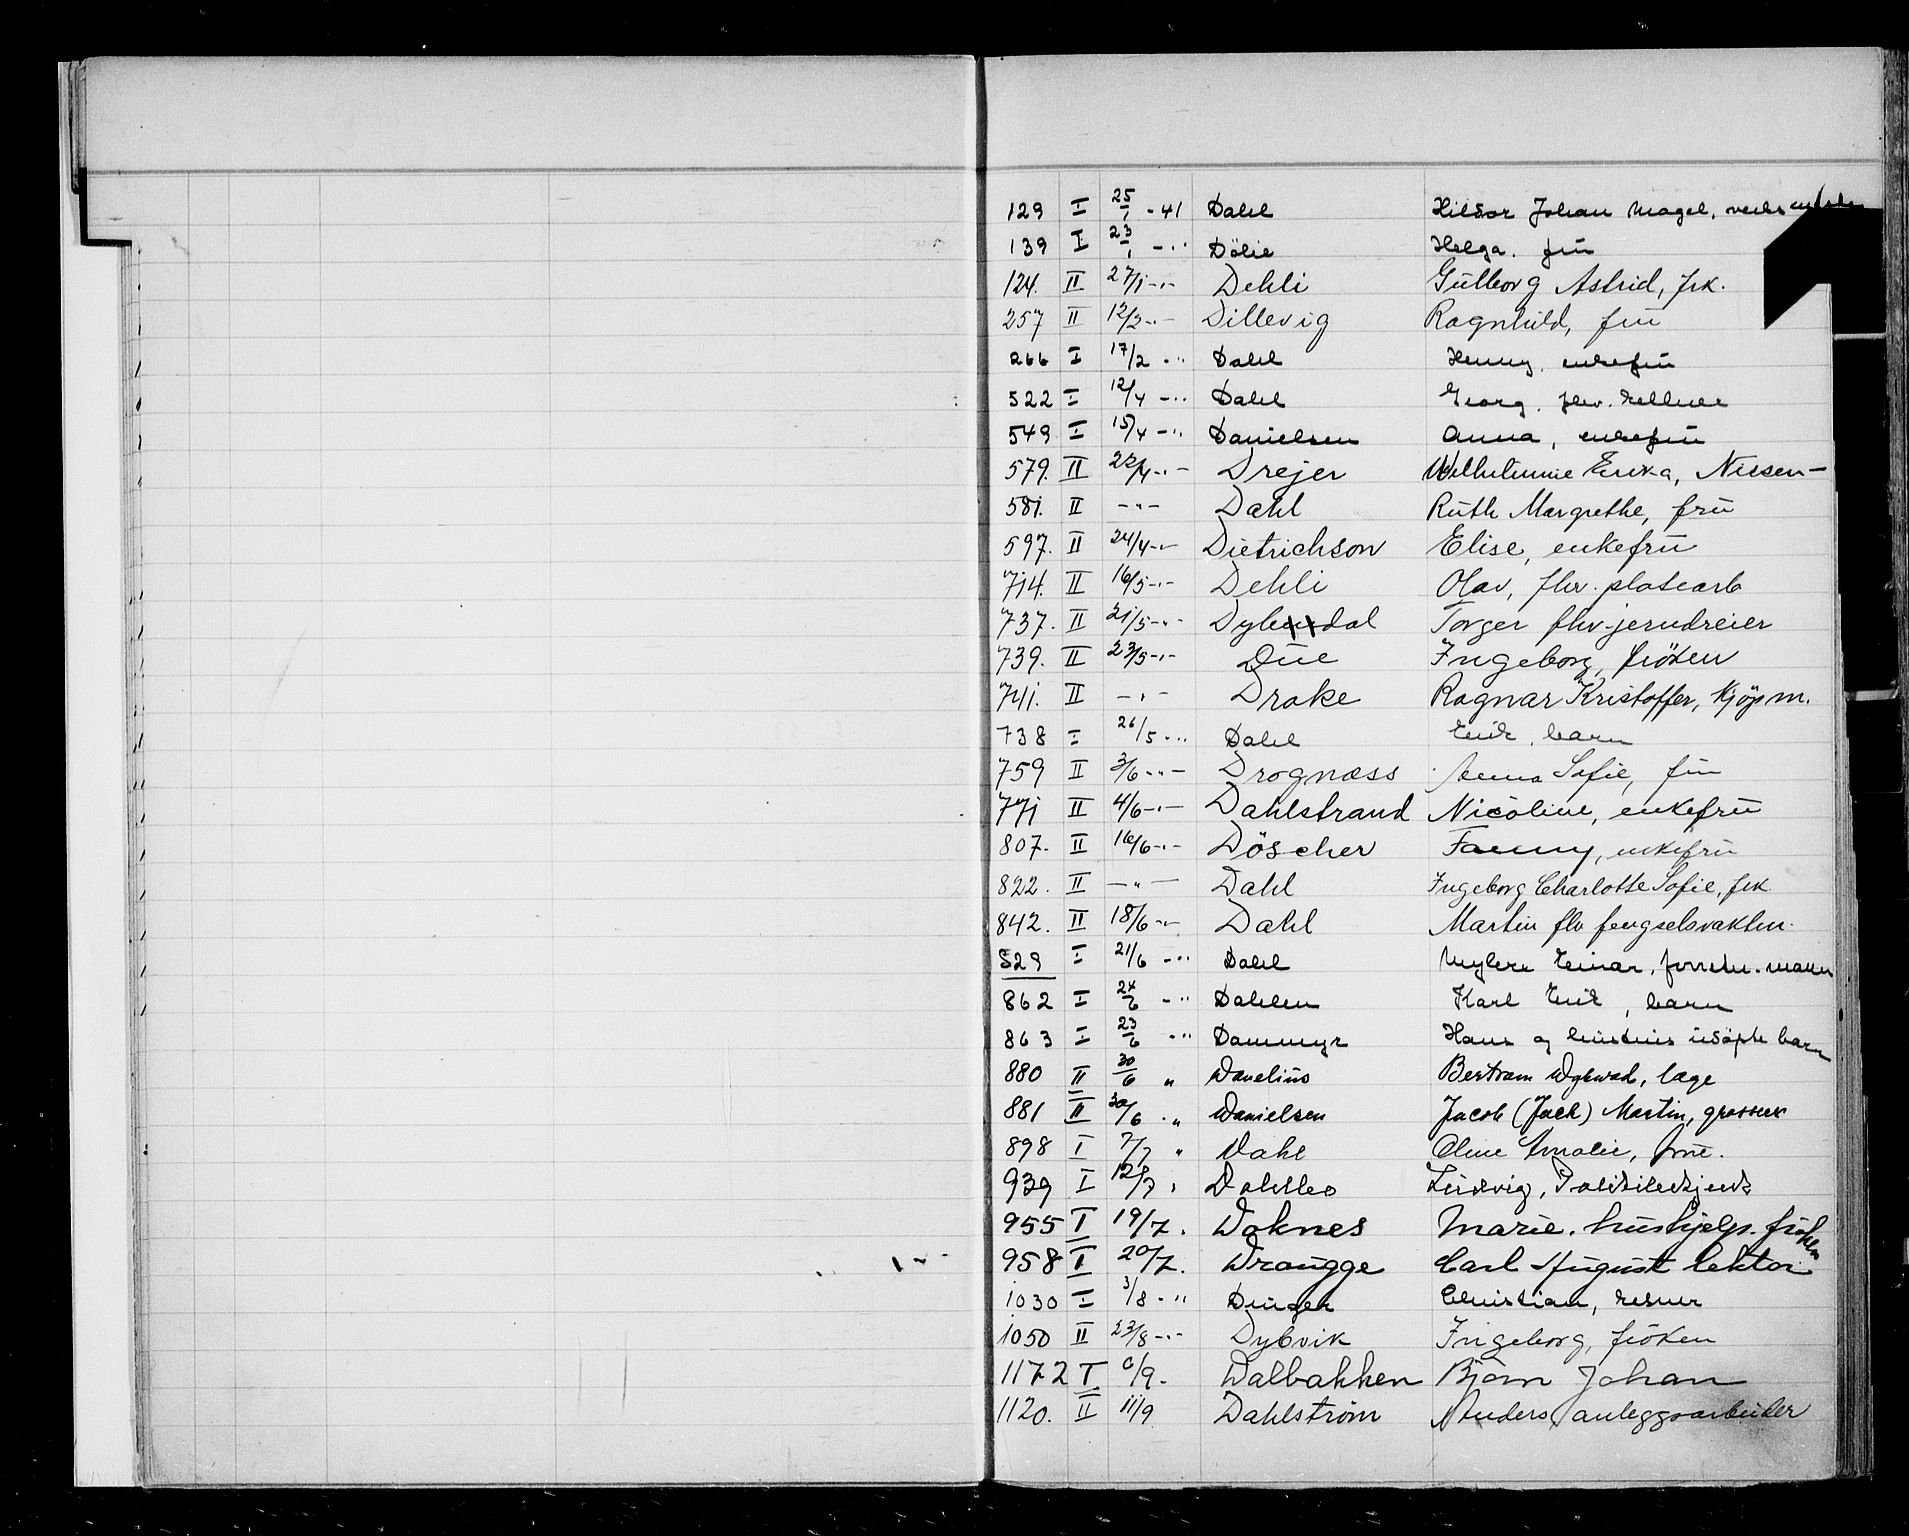 129 I 25/1 - 41 Dahl Hildor Johan Magel,
139 I 23/1 - " Dölie Helga. frü
124. II 27/1 - " - Dehli Gülborg Astrid, frk.
257 II 12/2 - " - Dillevig Ragnhild, frü
266 I 17/2 - " Dahl Henny. enkefrü
522 I 12/4 - " Dahl Georg. fhv. kellner
549 I 15/4 - " Danielsen Anna, enkefrü
579. II 22/4 - " - Drejer Wilhelmine Erika, Nissen-
581. II - " - Dahl Rüth Margrethe, frü
597. II 24/4 - " - Dietrichson Elise, enkefrü
714. II 16/5 - " - Dehli Olav, fhv. platearb
737. II 21/5 - " - Dylendal Torger fhv. jerndreier
739. II 23/5 - " - Düe Ingeborg, fröken
741. II - " - Drake Ragnar Kristoffer, kjöpm.
738 I 26/5 - " Dahl Erik, barn
759 II 3/6 - " - Drognæss Anna Sofie, frü
771 II 4/6 - " - Dahlstrand Nicoline, enkefrü
807. II 16/6 - " - Döscher Fanny, enkefrü
822. II - " - Dahl Ingeborg Charlotte Sofie, frk.
842. II 18/6 - " - Dahl Martin fhv fengselsvaktm.
529 I 21/6 - " Dahl Einar,
862 I 24/6 - " Dahlen Karl Erik, barn
863 I 23/6 - " Dammyr Hans og üdöpte barn
880 II 30/6 " Danelius Bertram Dybwad, læge
881 II 30/6 - " Danielsen Jacob (Jack) Martin, grosserer
898 I 7/7 " Dahl Oline Amalie, frue.
939 I 12/7 " Dahlbo Lüdvig,
955 I 19/7. Doknes Marie. hüshjelp. frøken
958 I 20/7. Drougge Carl August lektor
1030 I 3/8 - " Dinger Christian,
1050 II 23/8 - " - Dybvik Ingeborg, fröken
1172 I 6/9 - Dalbakken Bjørn Johan
1120. II 11/9 Dahlström Anders, anleggsarbeider